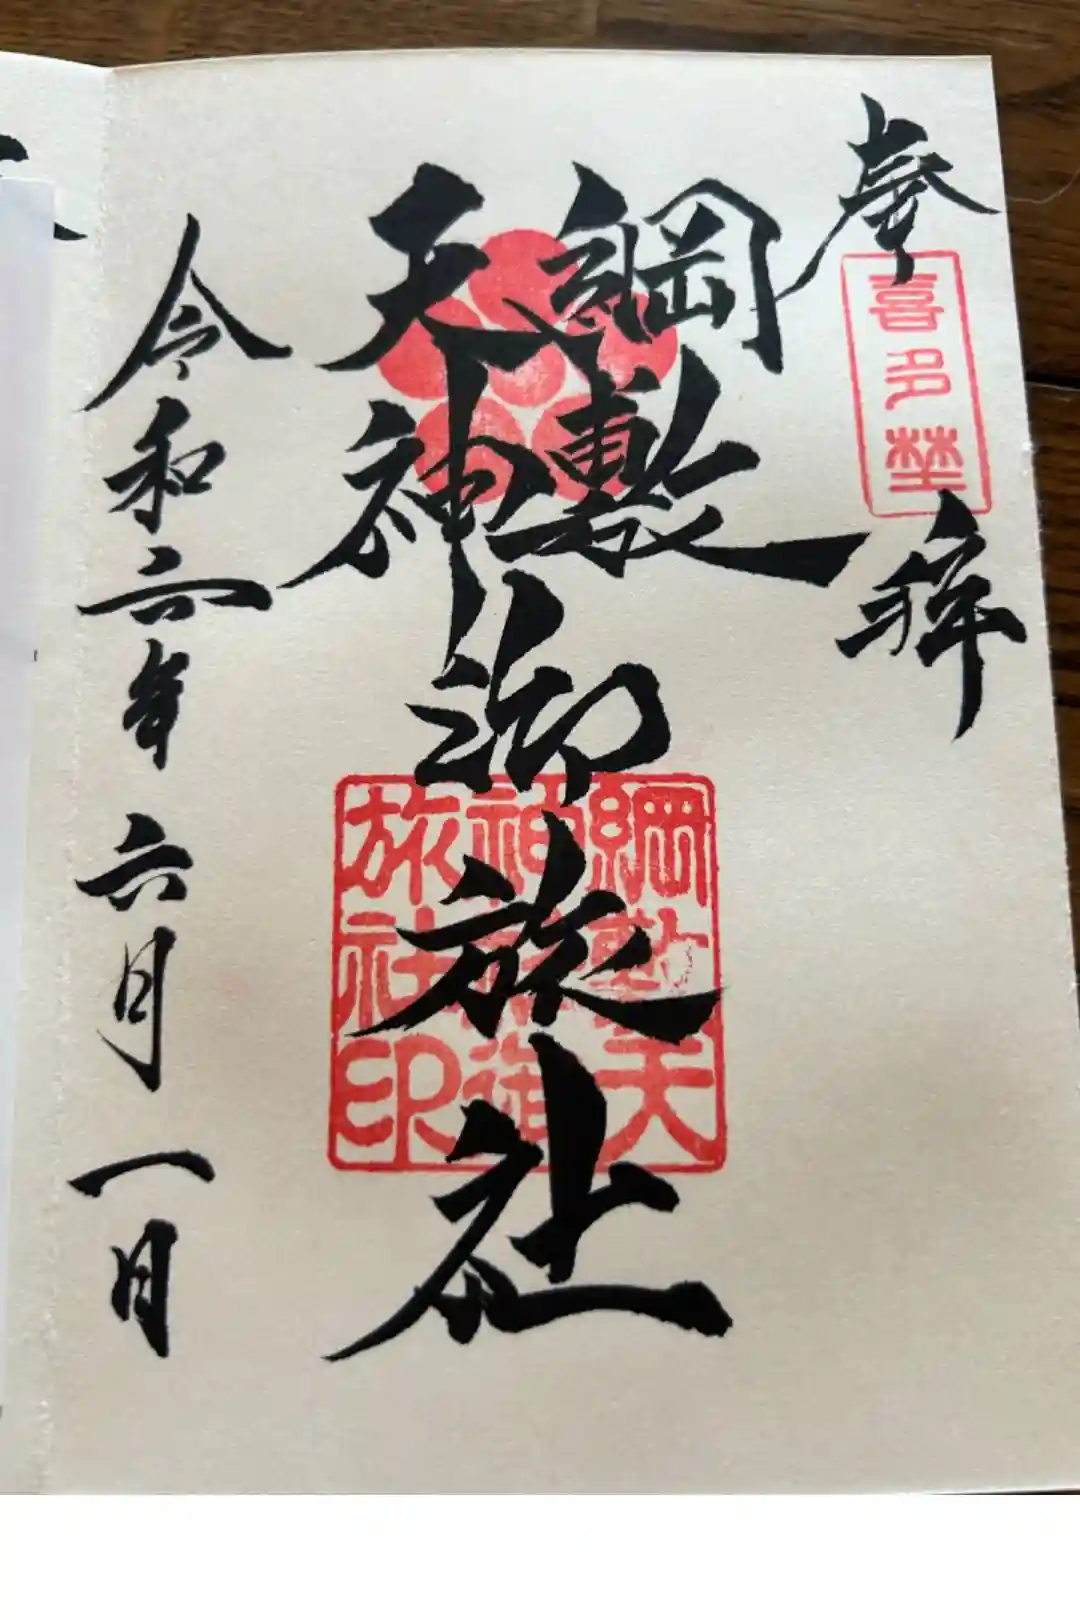 奉拝
喜多埜
綱敷
天神
御旅社
綱敷天
神社御
旅社印
令和六年六月一日